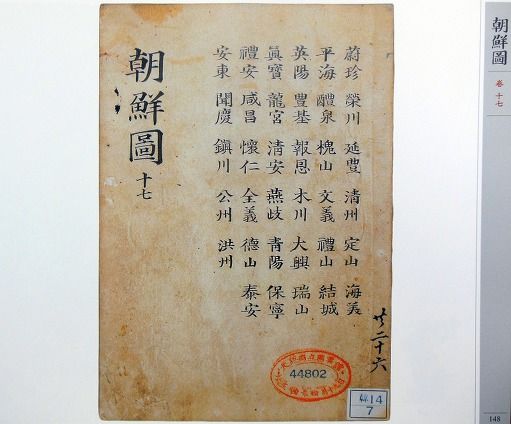 朝鮮圖
卷十七
蔚珍 榮川 延豊 清州 定山 海美
平海 醴泉 槐山 文義 禮山 結城
英陽 豊基 報恩 木川 大興 瑞山
眞寶 龍宮 清安 燕岐 青陽 保寧
禮安 咸昌 懷仁 全義 德山 泰安
安東 聞慶 鎭川 公州 洪州
朝鮮圖 十七
二十六
44802
14
7
148